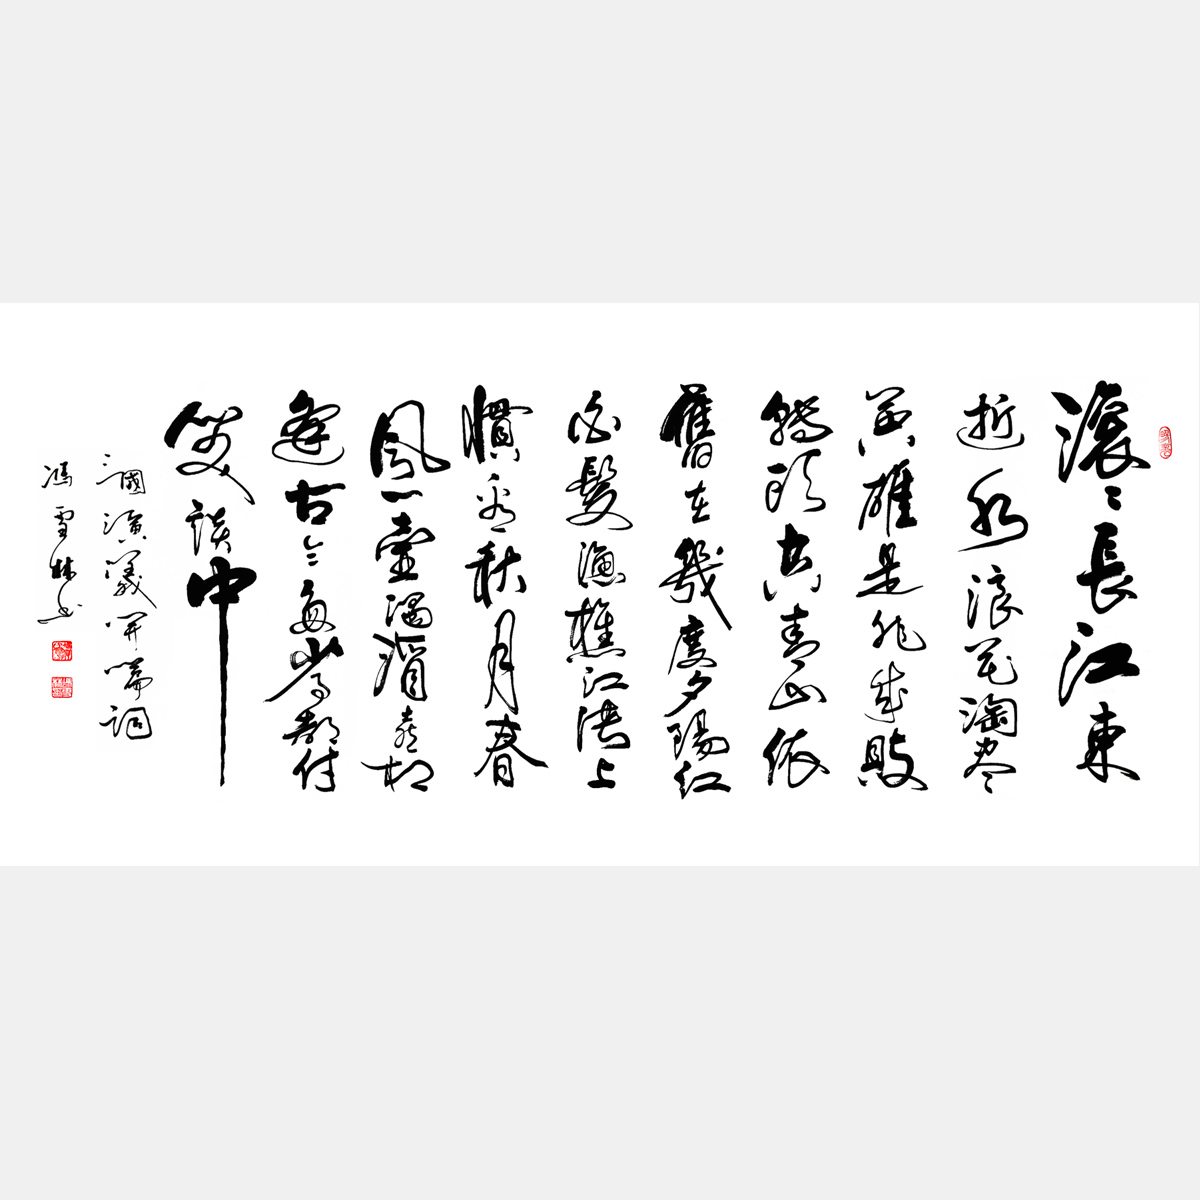 滚滚長江東
逝水浪花淘尽
英雄是非成敗
轉頭空青山依
舊在幾度夕陽紅
白髮漁樵江渚上
慣看秋月春
風一壺濁酒喜相
逢古今多少事都付
笑談中
三國演義開端詞
馮雪林书